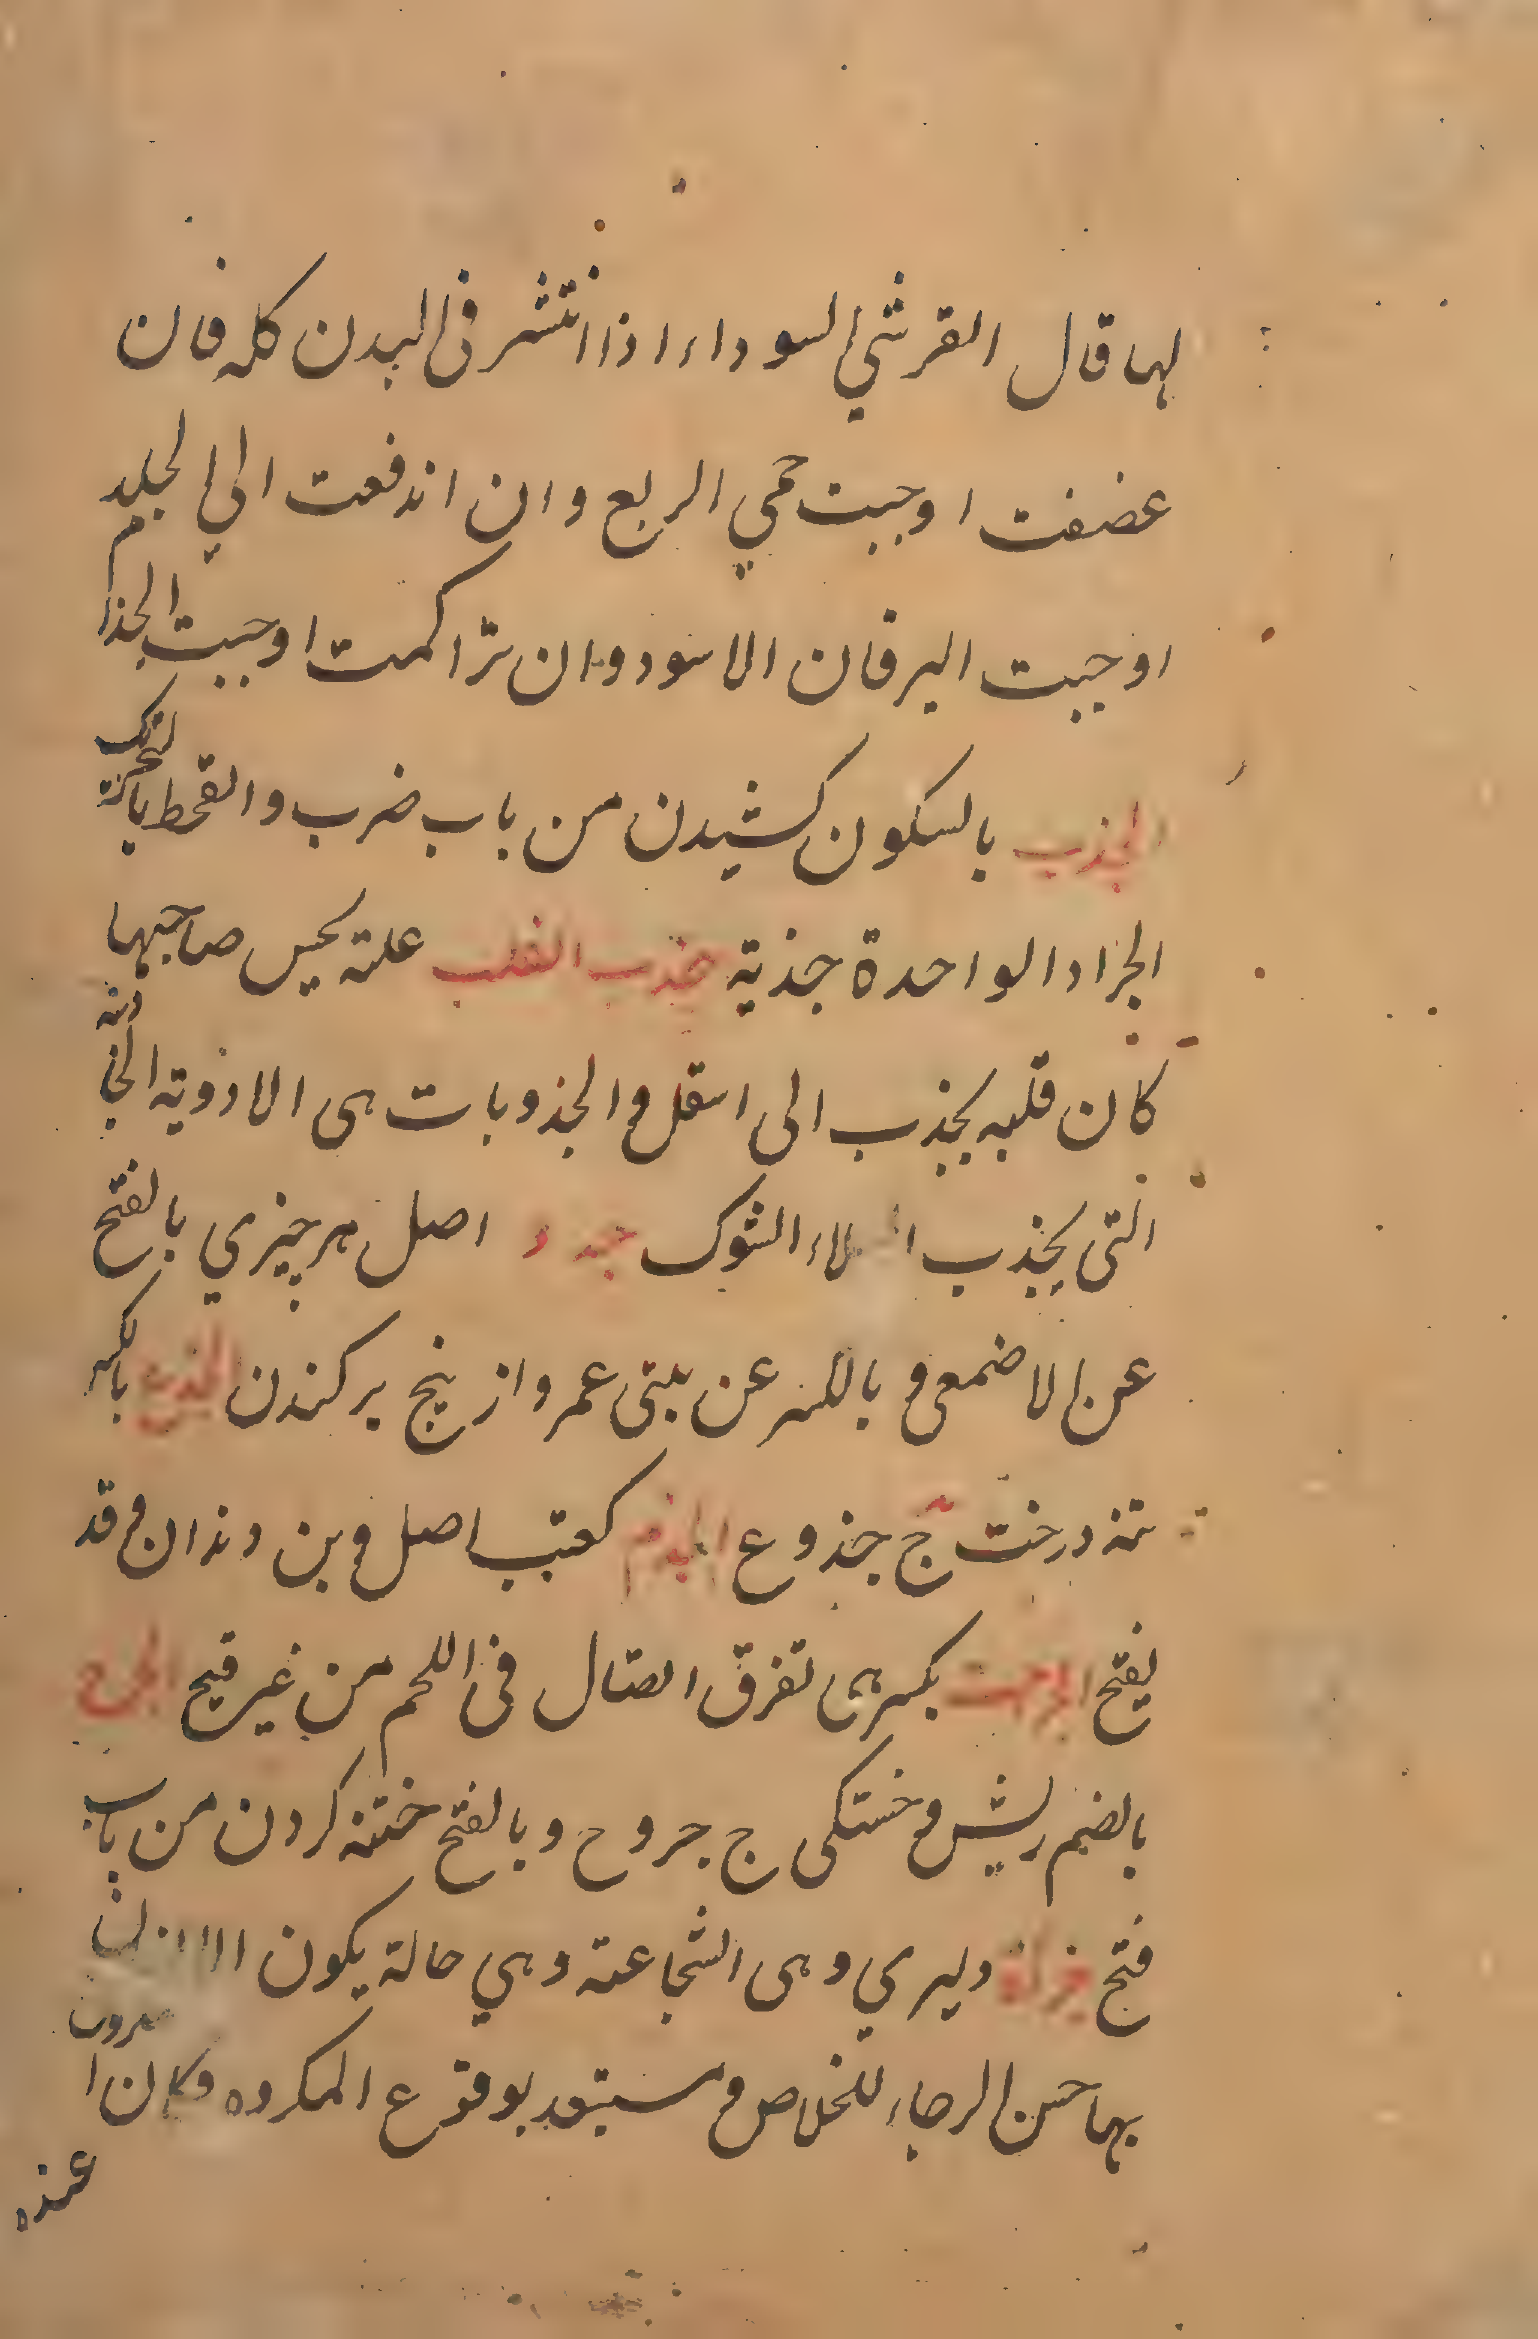 لها قال القرشي السوداء اذا انتشر فى البدن كله فان
عضفت اوجبت حمي الربع وان اندفعت الي الجلد
اوجبت اليرقان الاسود وان تراكمت اوجبت الجذام
الجذب بالسكون كشيدن من باب ضرب والقحط بالتحريك
الجراد الواحدة جذية جذب القلب علته يحس صاحبها
كان قلبه يجذب الى اسفل و الجذوبات هى الادوية
التى يجذب السلاء الشوك جذر اصل هر چيزي بالفتح
عن الاصمعى و بالكسر عن بنى عمرو از بيخ بركندن الجذع بالكسر
تنه درخت ج جذوع الجذم كعتب اصل و بن دندان و قد
يفتح الجراحت بكسر هى تفرق اتصال فى اللحم من غير قيح الجرح
بالضم ريش و خستكى ج جروح و بالفتح خسته كردن من باب
فتح جرأة دليري وهى الشجاعة وهي حالة يكون
بها حسن الرجاء للخلاص و مستبعد بوقوع المكروه وكان
عنده